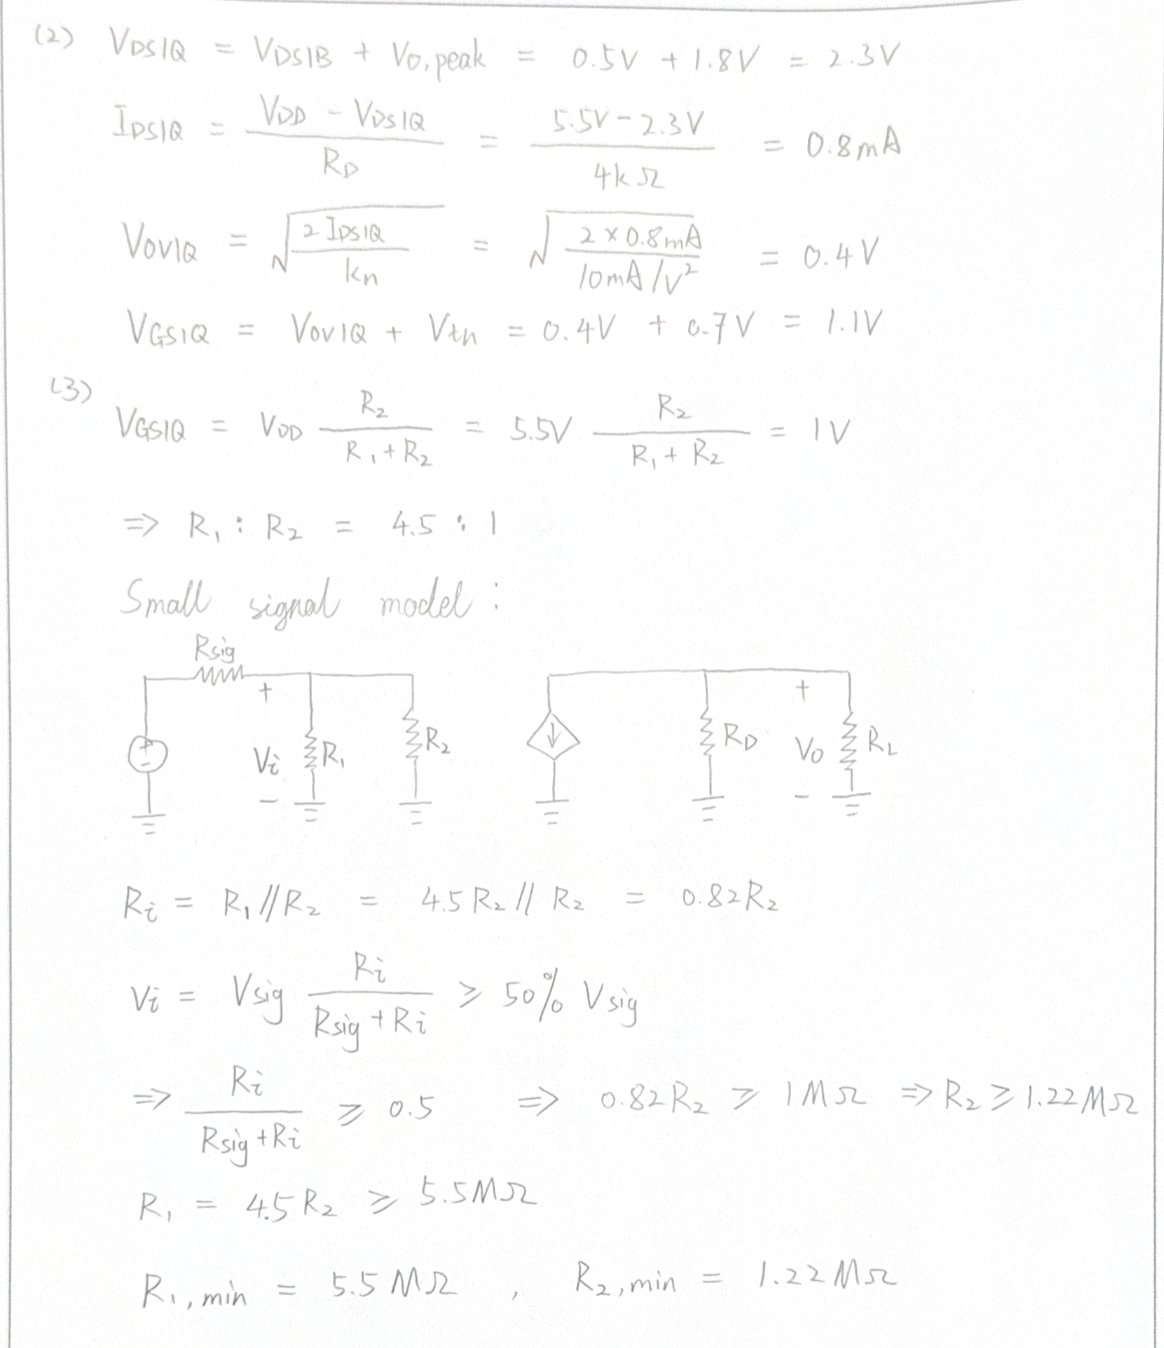 (2) VDS|Q = VDS|B + Vo,peak = 0.5V + 1.8V = 2.3V
IDS|Q = (VDD - VDS|Q) / RD = (5.5V - 2.3V) / 4kΩ = 0.8mA
VOV|Q = √(2 IDS|Q / kn) = √(2 × 0.8mA / 10mA/V²) = 0.4V
VGS|Q = VOV|Q + Vtn = 0.4V + 0.7V = 1.1V
(3) VGS|Q = VDD R2 / (R1 + R2) = 5.5V R2 / (R1 + R2) = 1V
⇒ R1 : R2 = 4.5 : 1
Small signal model :
Rsig
+ Vi - R1 R2 RD + Vo - RL
Ri = R1 // R2 = 4.5 R2 // R2 = 0.82R2
Vi = Vsig Ri / (Rsig + Ri) ≥ 50% Vsig
⇒ Ri / (Rsig + Ri) ≥ 0.5 ⇒ 0.82R2 ≥ 1MΩ ⇒ R2 ≥ 1.22MΩ
R1 = 4.5 R2 ≥ 5.5MΩ
R1,min = 5.5 MΩ , R2,min = 1.22MΩ